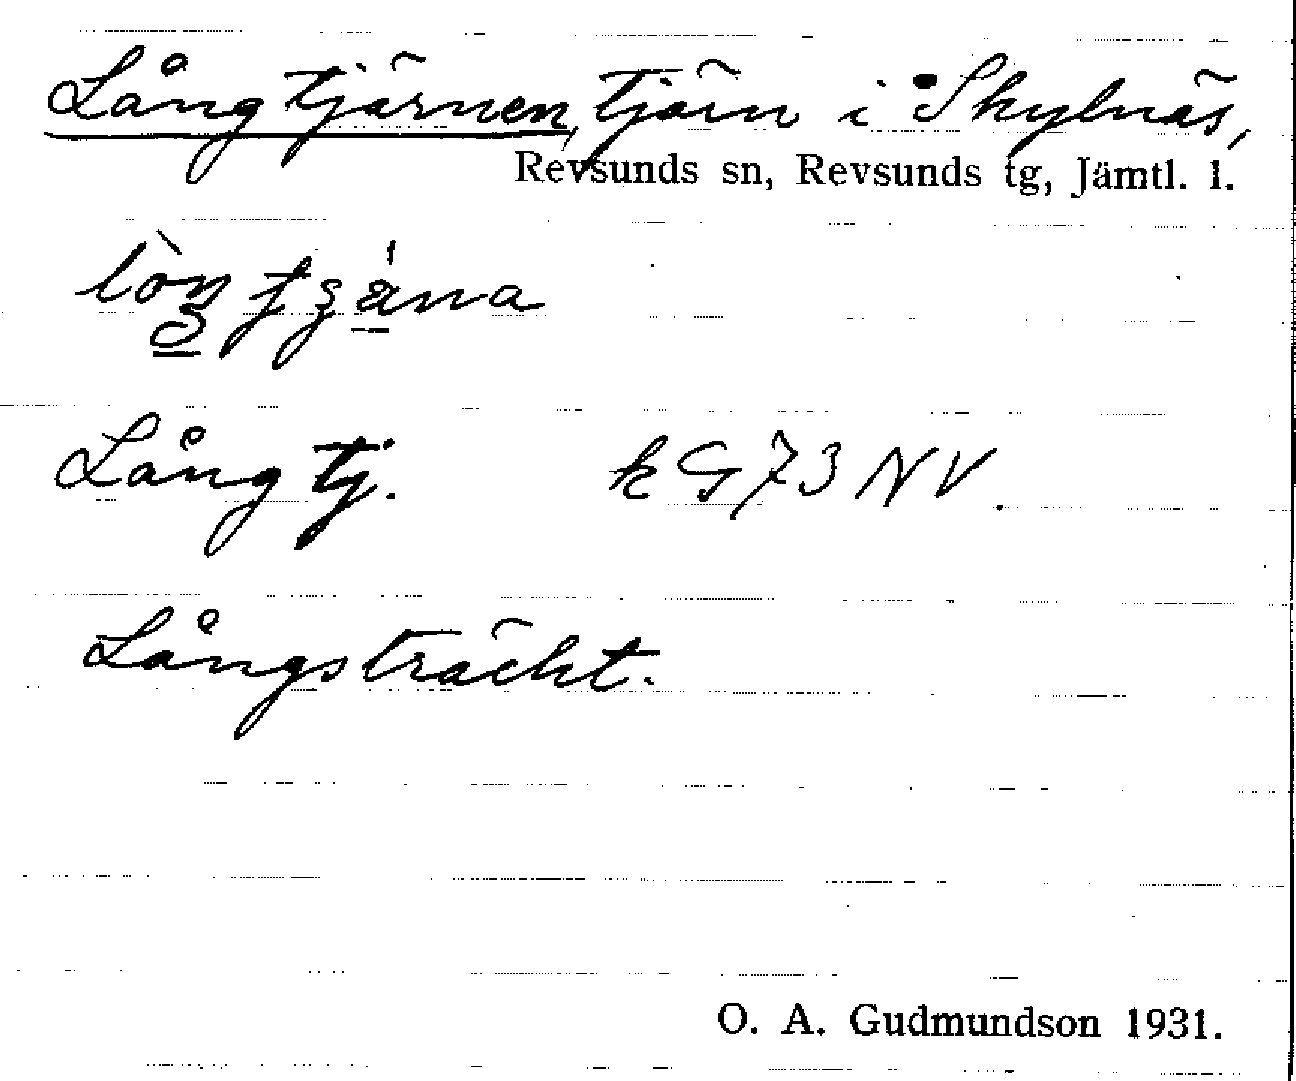 Långtjärnen, tjärn i Skylnäs,
Revsunds sn, Revsunds tg, Jämtl. l.
Lång tj. k G 73 NV.
Långsträckt.
O. A. Gudmundson 1931.